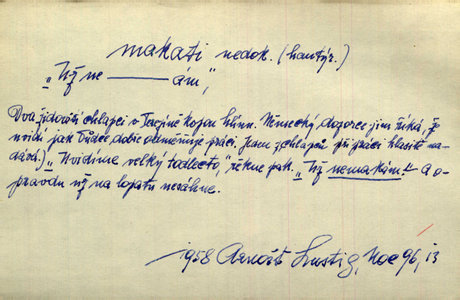 makati nedok. (hantýr.)
„Už ne———ám",
Dva židovští chlapci v Terezíně kopou hlínu. Německý dozorce jim říká, že
uvidí jak Vůdce dobře odměňuje práci. Jeden z chlapců při práci hlasitě na-
dává.) „Uvidíme velký todlecto," řekne pak. „Už nemakám." a o-
pravdu už na lopatu nesáhne.
1958 Arnošt Lustig, Noc 96, 13